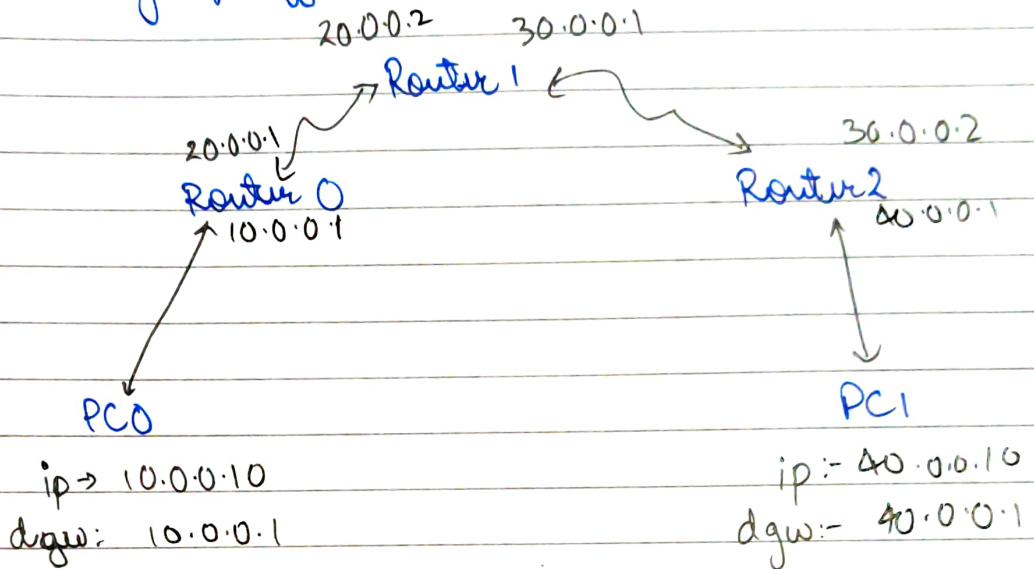 20.0.0.2 30.0.0.1
Router 1
20.0.0.1 30.0.0.2
Router 0 Router 2
10.0.0.1 40.0.0.1
PC0 PC1
ip → 10.0.0.10 ip :- 40.0.0.10
dgw: 10.0.0.1 dgw :- 40.0.0.1